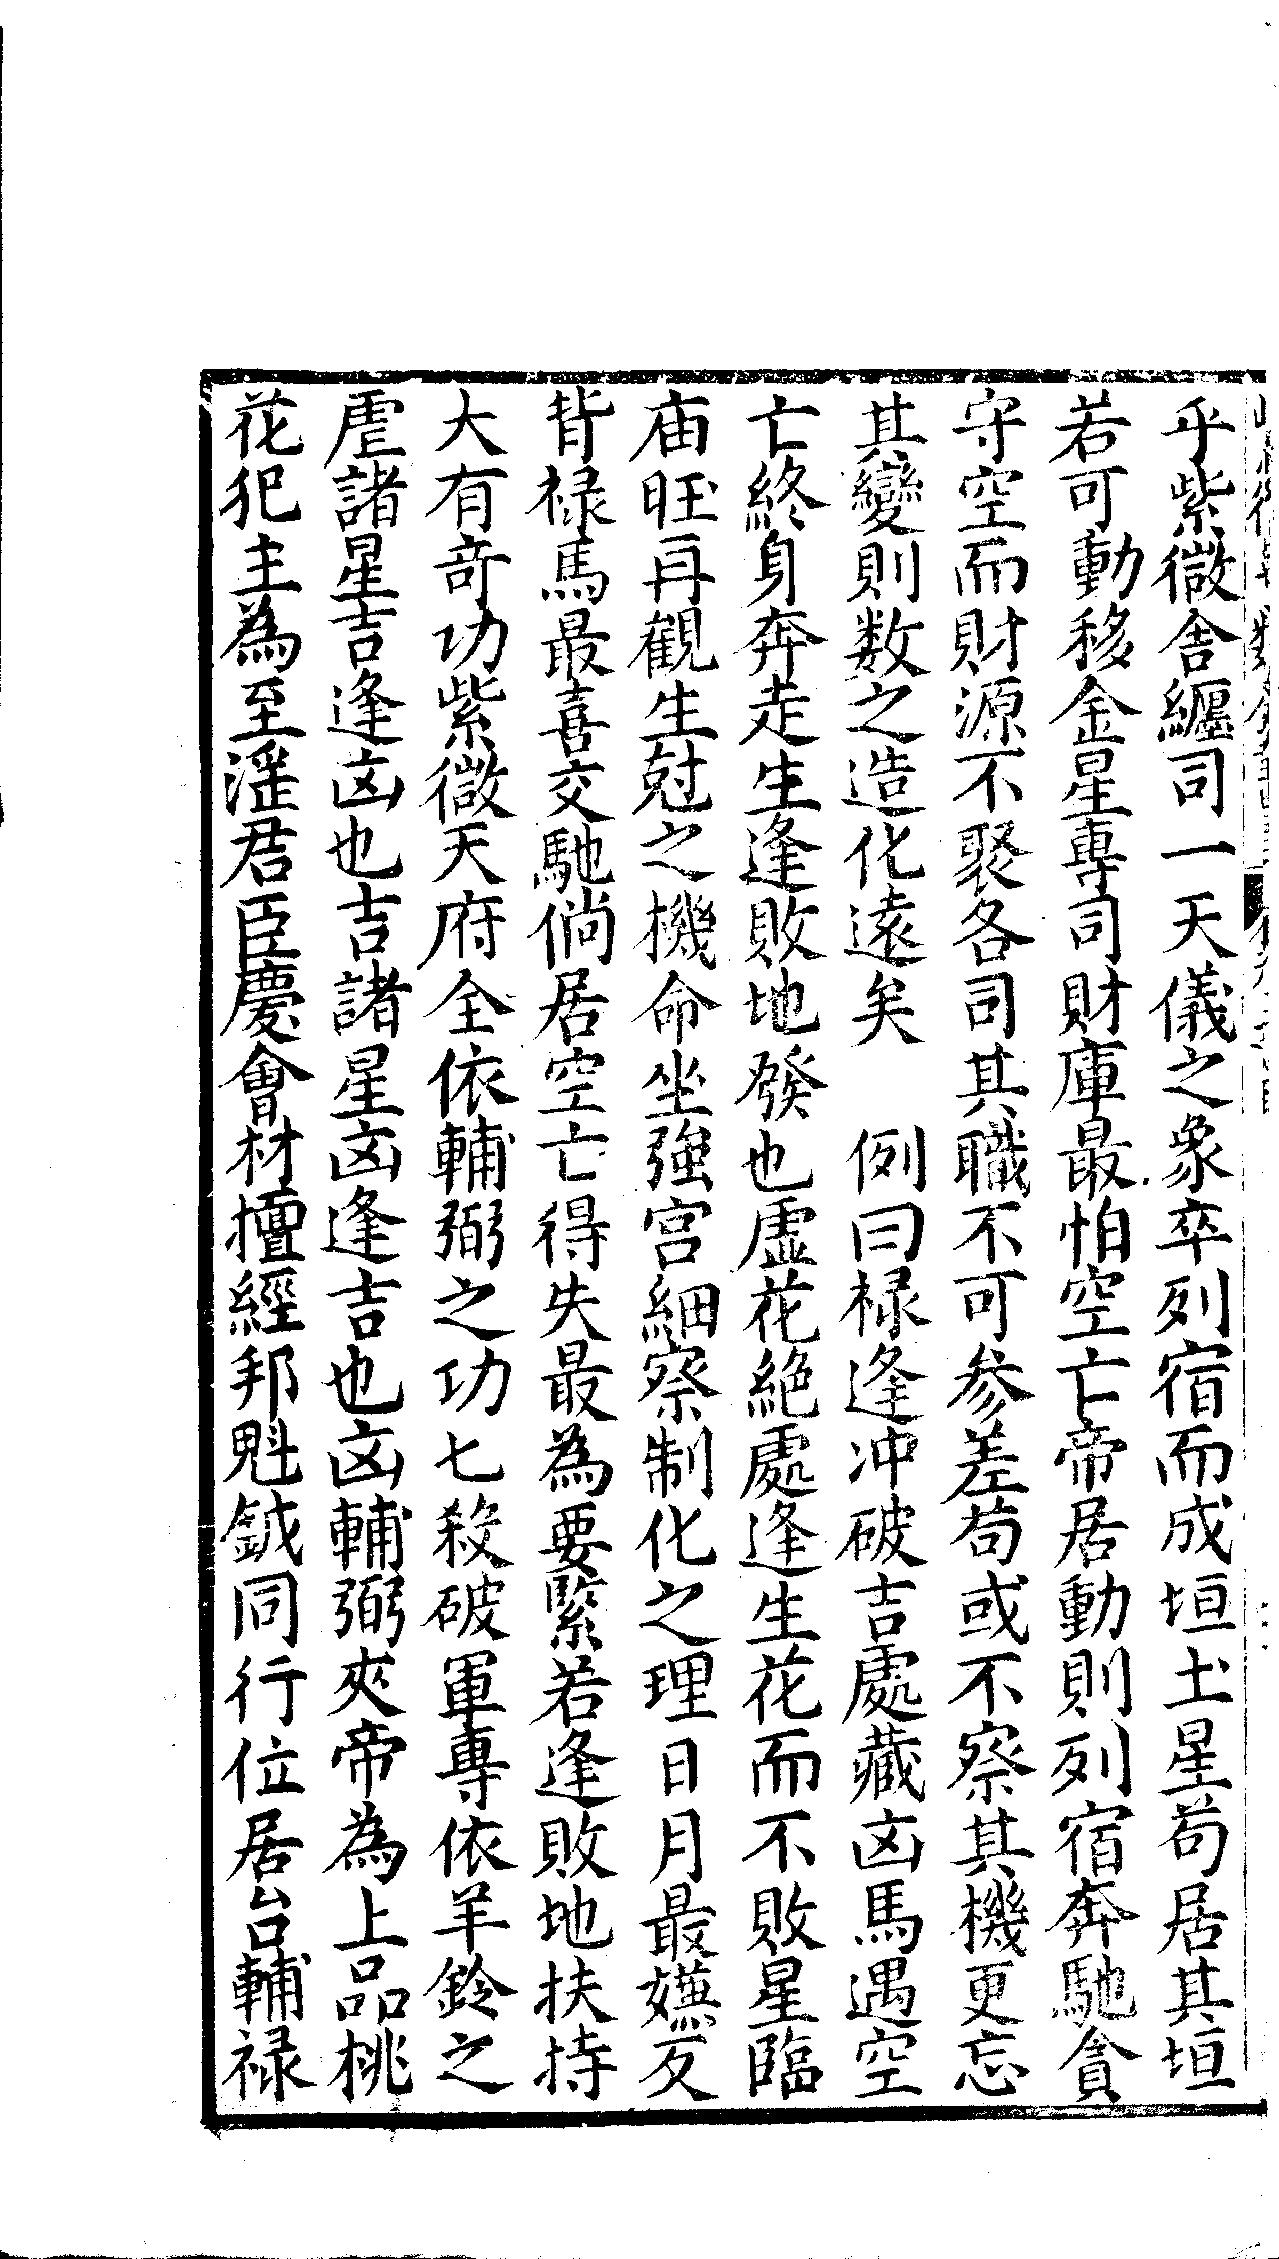 乎紫微舍纏司一天儀之象卒列宿而成垣土星苟居其垣
若可動移金星専司財庫最怕空亡帝居動則列宿奔馳貪
守空而財源不聚各司其職不可參差苟或不察其機更忘
其變則数之造化遠矣　例曰祿逢冲破吉處藏凶馬遇空
亡終身奔走生逢敗地發也虛花絕處逢生花而不敗星臨
庙旺再観生尅之機命坐強宮細察制化之理日月最嫌反
背祿馬最喜交馳倘居空亡得失最為要緊若逢敗地扶持
大有奇功紫微天府全依輔弼之功七殺破軍専依羊鈴之
虐諸星吉逢凶也吉諸星凶逢吉也凶輔弼夾帝為上品桃
花犯主為至淫君臣慶會材擅經邦魁鉞同行位居台輔祿